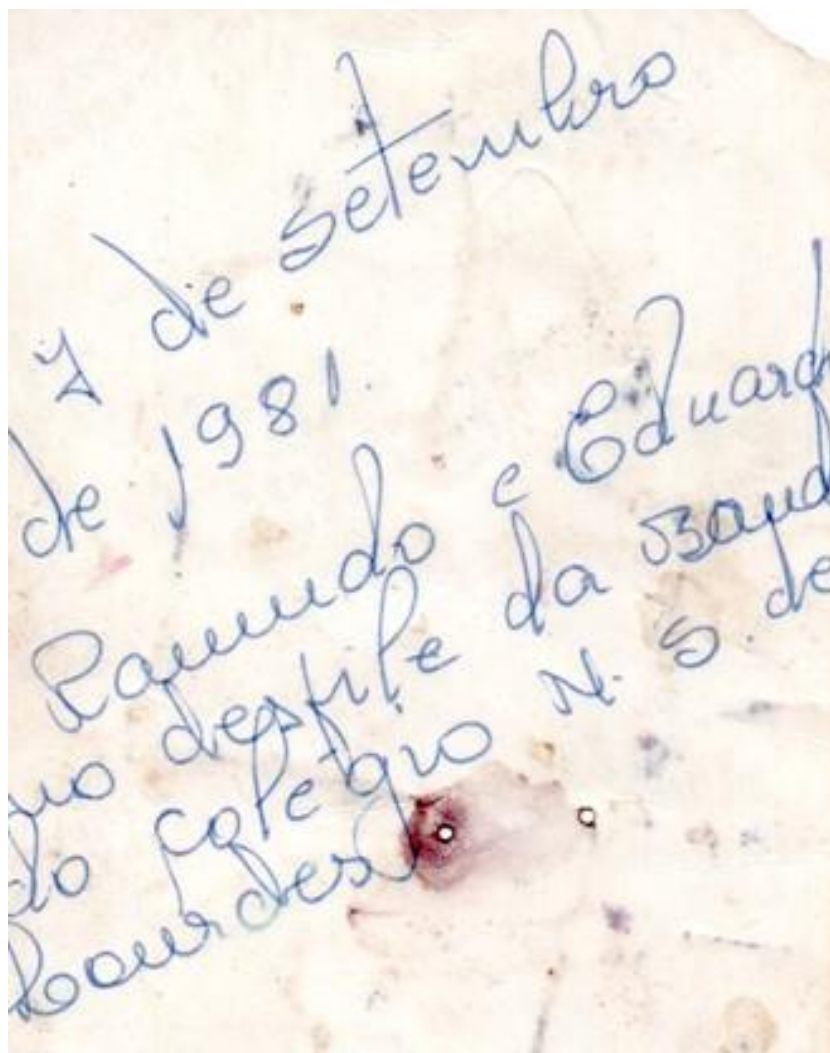 7 de setembro
de 1981.
Raimundo e Eduard
no desfile da Band
do colégio N. S de
Lourdes